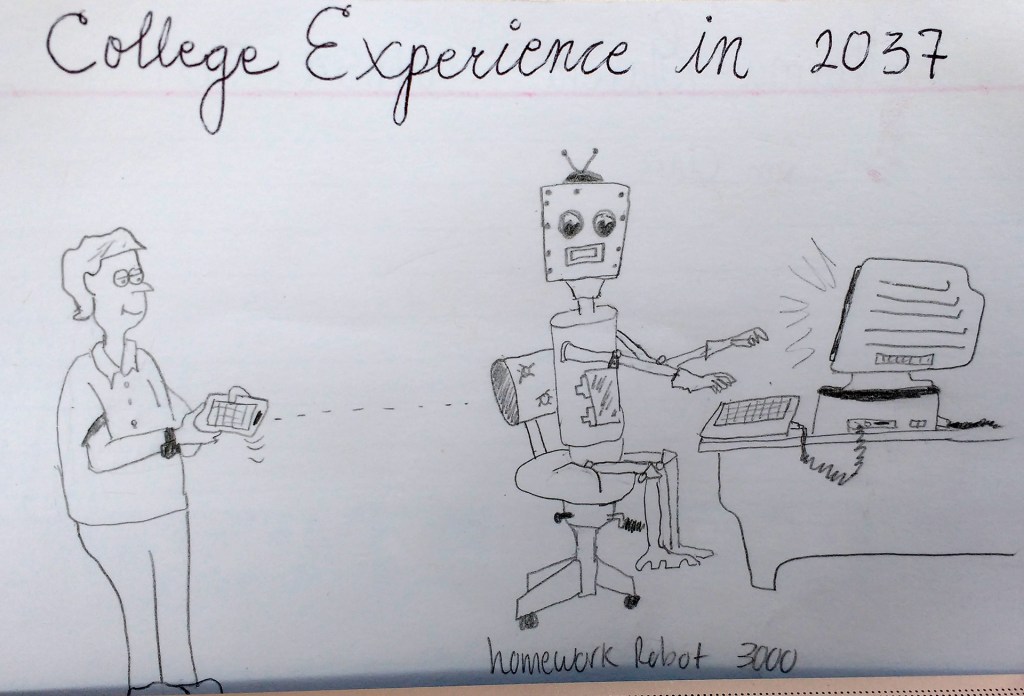 College Experience in 2037
homework Robot 3000